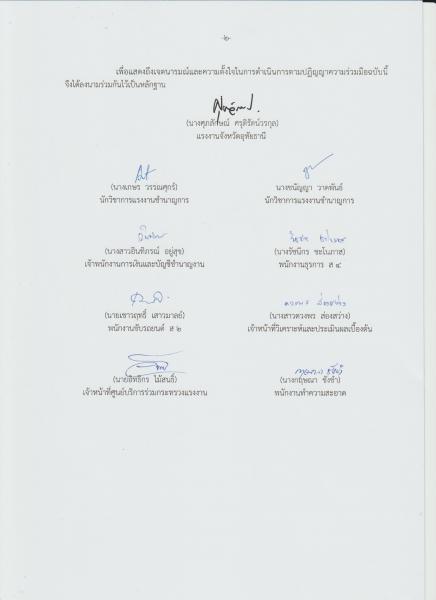 -๒-
เพื่อแสดงถึงเจตนารมณ์และความตั้งใจในการดำเนินการตามปฏิญญาความร่วมมือฉบับนี้
จึงได้ลงนามร่วมกันไว้เป็นหลักฐาน
(นางศุภลักษณ์ ศรุติรัตน์วรกุล)
แรงงานจังหวัดอุทัยธานี
(นางเกษร วรรณศุกร์)
นักวิชาการแรงงานชำนาญการ
นางชนัญญา วาดพันธ์
นักวิชาการแรงงานชำนาญการ
(นางสาวอินทิภรณ์ อยู่สุข)
เจ้าพนักงานการเงินและบัญชีชำนาญงาน
(นางรัชนีกร ชะโนภาส)
พนักงานธุรการ ส ๔
(นายเชาวฤทธิ์ เสาวมาลย์)
พนักงานขับรถยนต์ ส ๒
(นางสาวดวงพร ส่องสว่าง)
เจ้าหน้าที่วิเคราะห์และประเมินผลเบื้องต้น
(นายอิทธิกร ไม้สนธิ์)
เจ้าหน้าที่ศูนย์บริการร่วมกระทรวงแรงงาน
(นางกฤษณา ขังขำ)
พนักงานทำความสะอาด